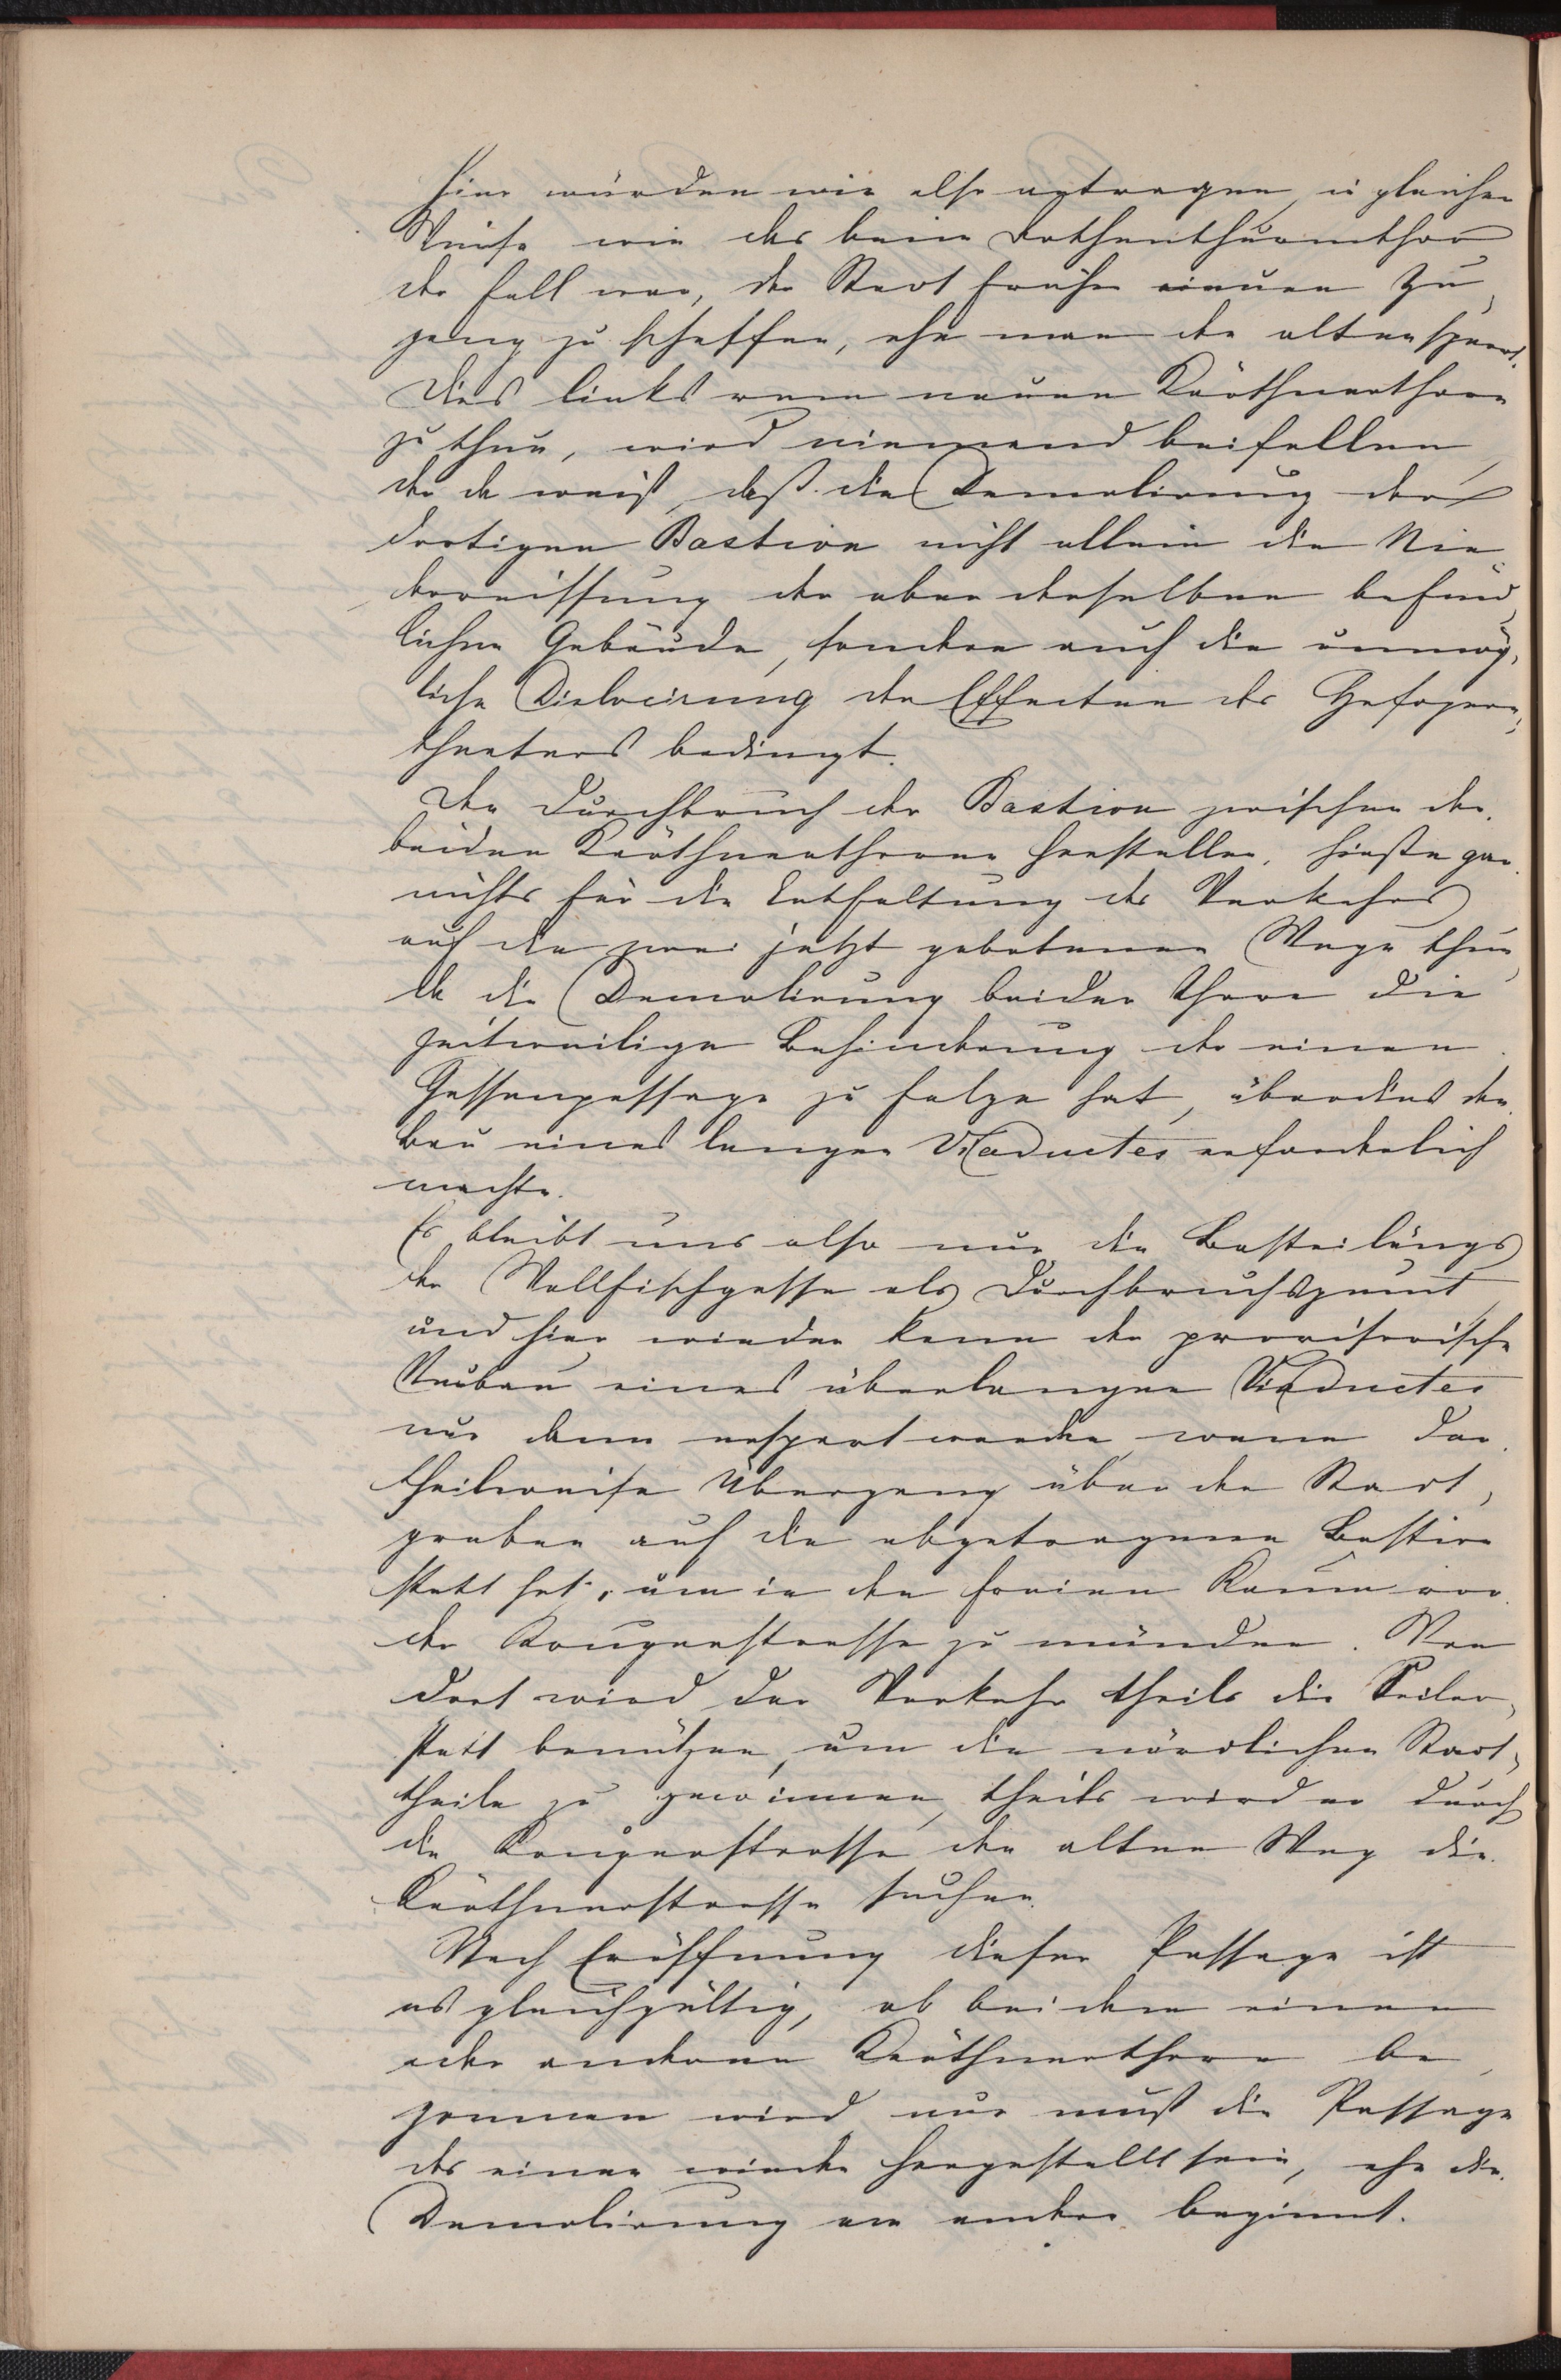 Hier würden wir also antragen, in gleicher
Weise wie das beim Rothenthurmthor
der Fall war, der Stadt früher einen Zu„
gang zu schaffen, ehe man den alten sperrt.
Dies links vom neuen Kärthnerthore
zu thun, wird niemand beifallen,
der da weiß, daß die Demolirung der
dortigen Bastion nicht allein die Nie„
derreissung der ober derselben befind„
lichen Gebäude, sondern auch die unmög„
liche Dislocirung der Effecten des Hofopern„
theaters bedingt.
Den Durchbruch der Bastion zwischen den
beiden Kärthnerthoren herstellen, hieße gar
nichts für die Entfaltung des Verkehrs
auf die zwei jetzt gebotenen Wege thun,
da die Demolirung beider Thore die
zeitweilige Behinderung der einen
Gassenpassage zu Folge hat, überdies den
Bau eines langen Viaductes erforderlich
machte.
Es bleibt uns also nur die Bastei längs
der Wallfischgasse als Durchbruchspunct
und hier wieder kann der provisorische
Neubau eines überlangen Viaductes
nur dann erspart werden, wenn der
theilweise Übergang über den Stadt„
graben auf die abgetragene Bastion
statt hat, um in den freien Raum vor
der Krugerstrasse zu münden. Von
dort wird der Verkehr theils die Seiler„
statt benützen, um die nördlichen Stadt„
theile zu gewinnen, theils wird er durch
die Krugerstrasse den alten Weg die
Kärthnerstrasse suchen.
Nach Eröffnung dieser Passage ist
es gleichgültig, ob bei dem einen
oder anderen Kärthnerthore be„
gonnen wird, nur muß die Passage
des einen wieder hergestellt sein, ehe die
Demolirung am andern beginnt.